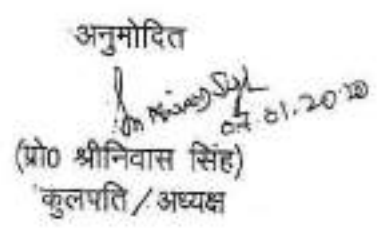 अनुमोदित
07.01.2020
(प्रो0 श्रीनिवास सिंह)
कुलपति/अध्यक्ष